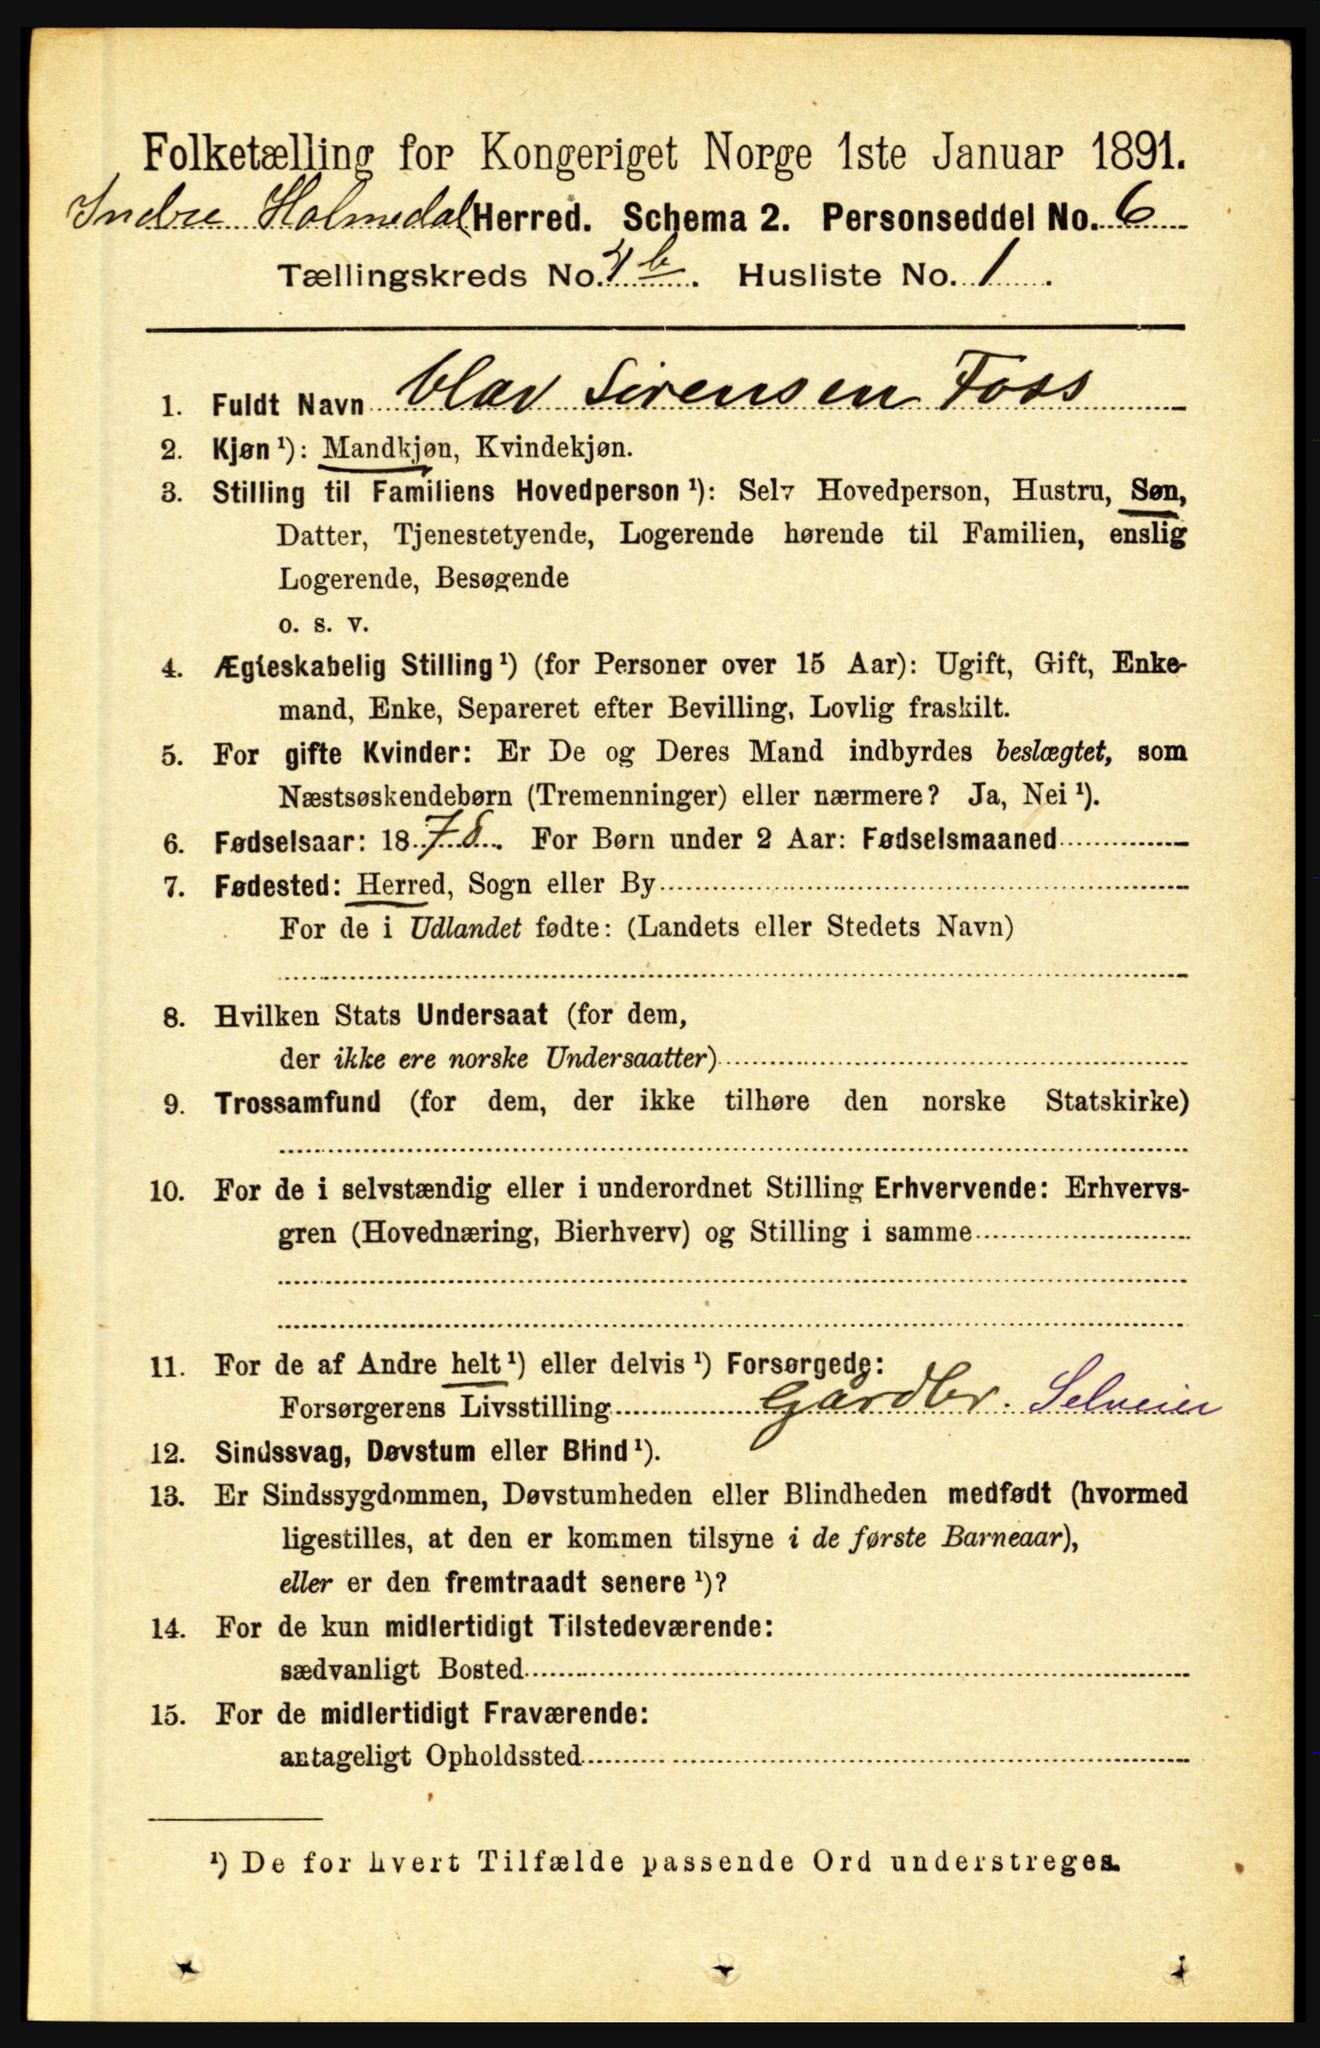 Folketælling for Kongeriget Norge 1ste Januar 1891.
Indre Holmedal Herred. Schema 2. Personseddel No. 6
Tællingskreds No. 4 b. Husliste No. 1.
1. Fuldt Navn Olav Sirensen Foss
2. Kjøn ¹): Mandkjøn, Kvindekjøn.
3. Stilling til Familiens Hovedperson ¹): Selv Hovedperson, Hustru, Søn,
Datter, Tjenestetyende, Logerende hørende til Familien, enslig
Logerende, Besøgende
o. s. v.
4. Ægteskabelig Stilling ¹) (for Personer over 15 Aar): Ugift, Gift, Enke-
mand, Enke, Separeret efter Bevilling, Lovlig fraskilt.
5. For gifte Kvinder: Er De og Deres Mand indbyrdes beslægtet, som
Næstsøskendebørn (Tremenninger) eller nærmere? Ja, Nei ¹).
6. Fødselsaar: 1878. For Børn under 2 Aar: Fødselsmaaned
7. Fødested: Herred, Sogn eller By
For de i Udlandet fødte: (Landets eller Stedets Navn)
8. Hvilken Stats Undersaat (for dem,
der ikke ere norske Undersaatter)
9. Trossamfund (for dem, der ikke tilhøre den norske Statskirke)
10. For de i selvstændig eller i underordnet Stilling Erhvervende: Erhvervs-
gren (Hovednæring, Bierhverv) og Stilling i samme
11. For de af Andre helt ¹) eller delvis ¹) Forsørgede:
Forsørgerens Livsstilling Gårdbr. Selveier
12. Sindssvag, Døvstum eller Blind ¹).
13. Er Sindssygdommen, Døvstumheden eller Blindheden medfødt (hvormed
ligestilles, at den er kommen tilsyne i de første Barneaar),
eller er den fremtraadt senere ¹)?
14. For de kun midlertidigt Tilstedeværende:
sædvanligt Bosted
15. For de midlertidigt Fraværende:
antageligt Opholdssted
¹) De for hvert Tilfælde passende Ord understreges.